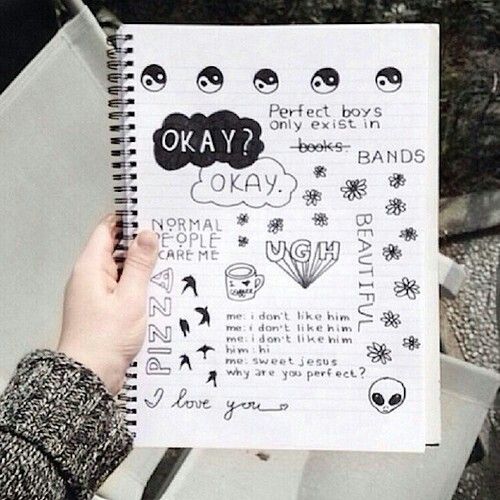 Perfect boys
only exist in
books.
BANDS
OKAY?
OKAY.
NORMAL
PEOPLE
SCARE ME
UGH
BEAUTIFUL
PIZZA
I
me: i don't like him
me: i don't like him
me: i don't like him
him: hi
me: sweet jesus
why are you perfect?
love you